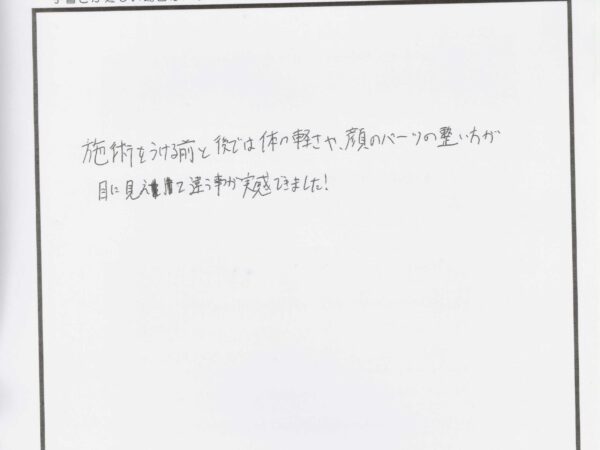 施術をうける前と後では体の軽さや、顔のパーツの整い方が
目に見えて違う事が実感できました!